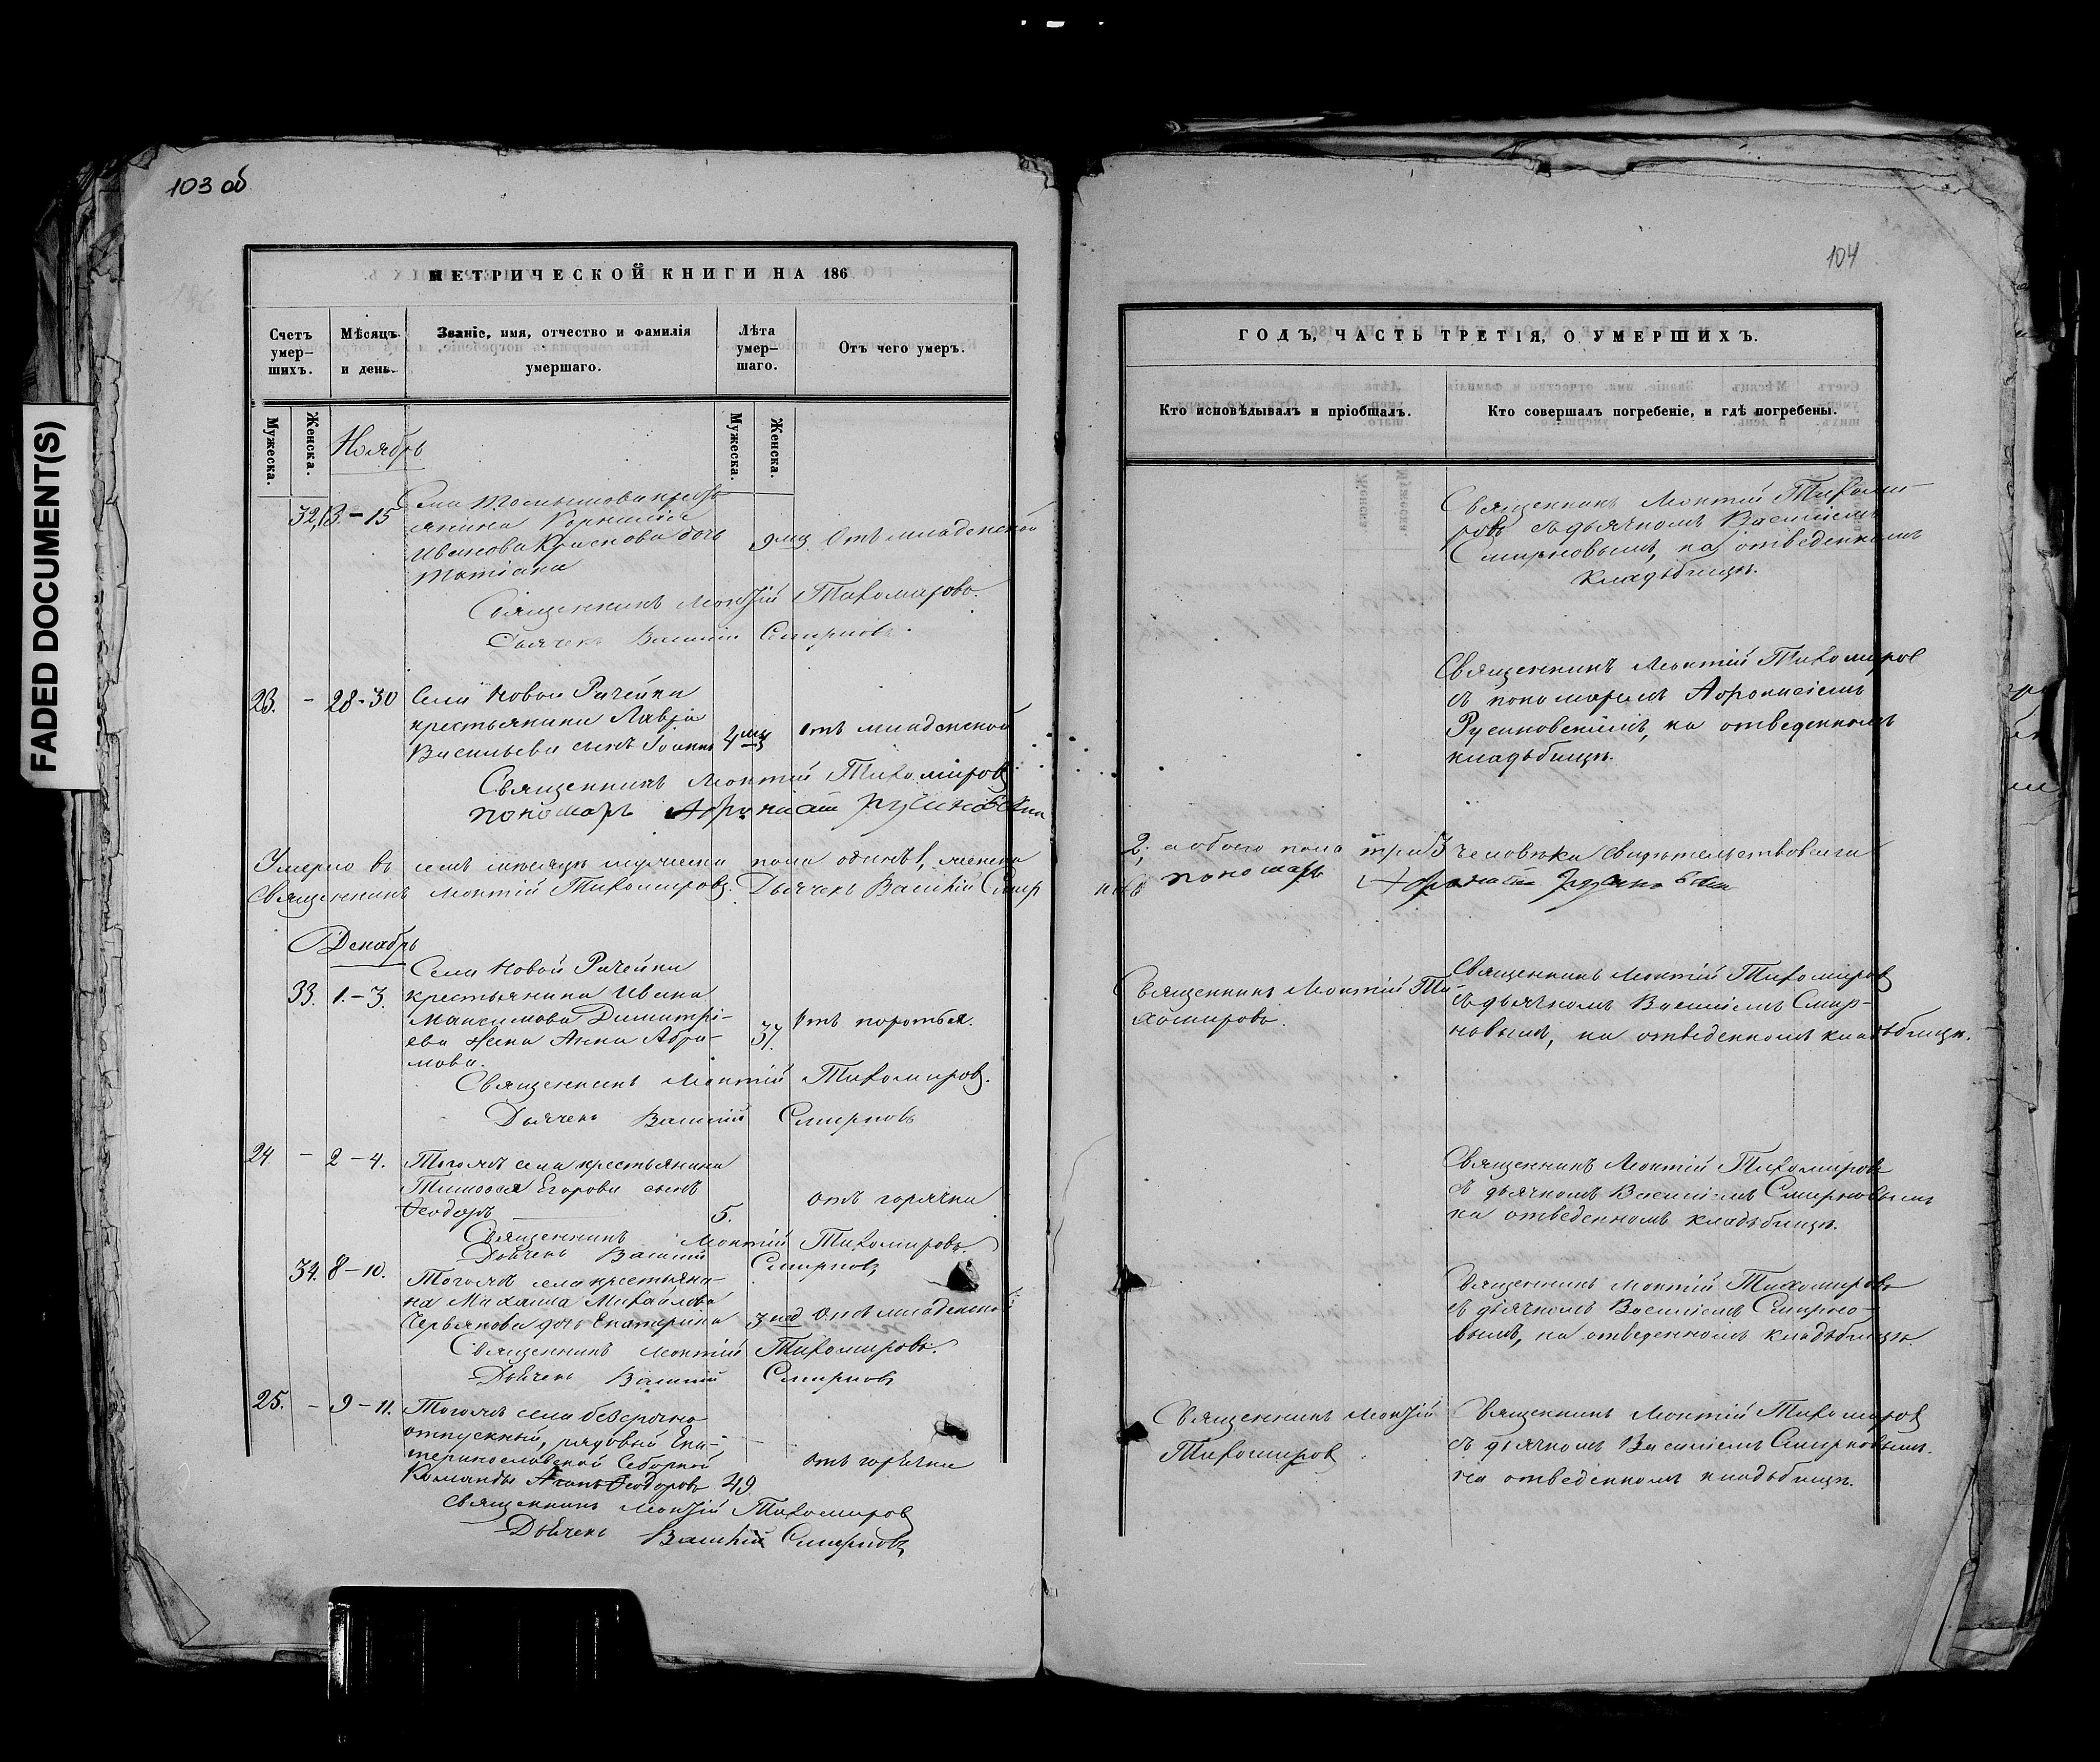 103 об
МЕТРИЧЕСКОЙ КНИГИ НА 186
Счетъ умер-шихъ.
Мѣсяцъ и день.
Званіе, имя, отчество и фамилія умершаго.
Лѣта умер-шаго.
Отъ чего умеръ.
Мужеска.
Женска.
Мужеска.
Женска.
Ноябрь
32. 13-15
крестьянина
Иванова дочь
Татіана
9 мц
Отъ младенской
Священникъ Леонтій Тихомировъ.
Дьячекъ Василій Смирновъ.
23. - 28-30 Села Новой Рачейки
крестьянина Лавра
Васильева сынъ Іоаннъ 4 мц отъ младенской
Священникъ Леонтій Тихомировъ
пономарь
Умерло въ семъ мѣсяцѣ мужеска пола одинъ 1, женска
Священникъ Леонтій Тихомировъ. Дьячекъ Василій Смир
Декабрь
Села Новой Рачейки
33. 1.-3. крестьянина Ивана
Максимова Димитрі-
ева жена Анна Абра-
мова.
37.
Отъ
Священникъ Леонтій Тихомировъ.
Дьячекъ Василій Смирновъ
24 - 2-4. Тогожъ села крестьянина
Тимофея Егорова сынъ
Ѳеодоръ 5.
отъ горячки
Священникъ Леонтій Тихомировъ.
Дьячекъ Василій Смирновъ
34. 8-10. Тогожъ села крестьяни-
на Михаила Михайлова
дочь Екатерина 3 нед Отъ младенской
Священникъ Леонтій Тихомировъ.
Дьячекъ Василій Смирновъ
25. - 9-11. Тогожъ села безсрочно
отпускный, рядовый Ека-
теринославской
Команды Ѳеодоровъ 49
отъ горячки
Священникъ Леонтій Тихомировъ
Дьячекъ Василій Смирновъ
FADED DOCUMENT(S)
104
ГОДЪ, ЧАСТЬ ТРЕТІЯ, О УМЕРШИХЪ.
Кто исповѣдывалъ и пріобщалъ.
Кто совершалъ погребеніе, и гдѣ погребены.
Священникъ Леонтій Тихоми-
ровъ съ дьячкомъ Василіемъ
Смирновымъ, на отведенномъ
кладбищѣ.
Священникъ Леонтій Тихомиров
съ пономаремъ
на отведенномъ
кладбищѣ.
2; обоего пола три 3 человѣка свидѣтельствовали
новъ пономарь
Священникъ Леонтій Ти-
хомировъ.
Священникъ Леонтій Тихомировъ
съ дьячкомъ Василіемъ Смир-
новымъ, на отведенномъ кладбищѣ.
Священникъ Леонтій Тихомировъ
съ дьячкомъ Василіемъ Смирновымъ
на отведенномъ кладбищѣ.
Священникъ Леонтій Тихомировъ
съ дьячкомъ Василіемъ Смирно-
вымъ, на отведенномъ кладбищѣ.
Священникъ Леонтій
Тихомировъ
Священникъ Леонтій Тихомировъ
съ дьячкомъ Василіемъ Смирновымъ.
на отведенномъ кладбищѣ.